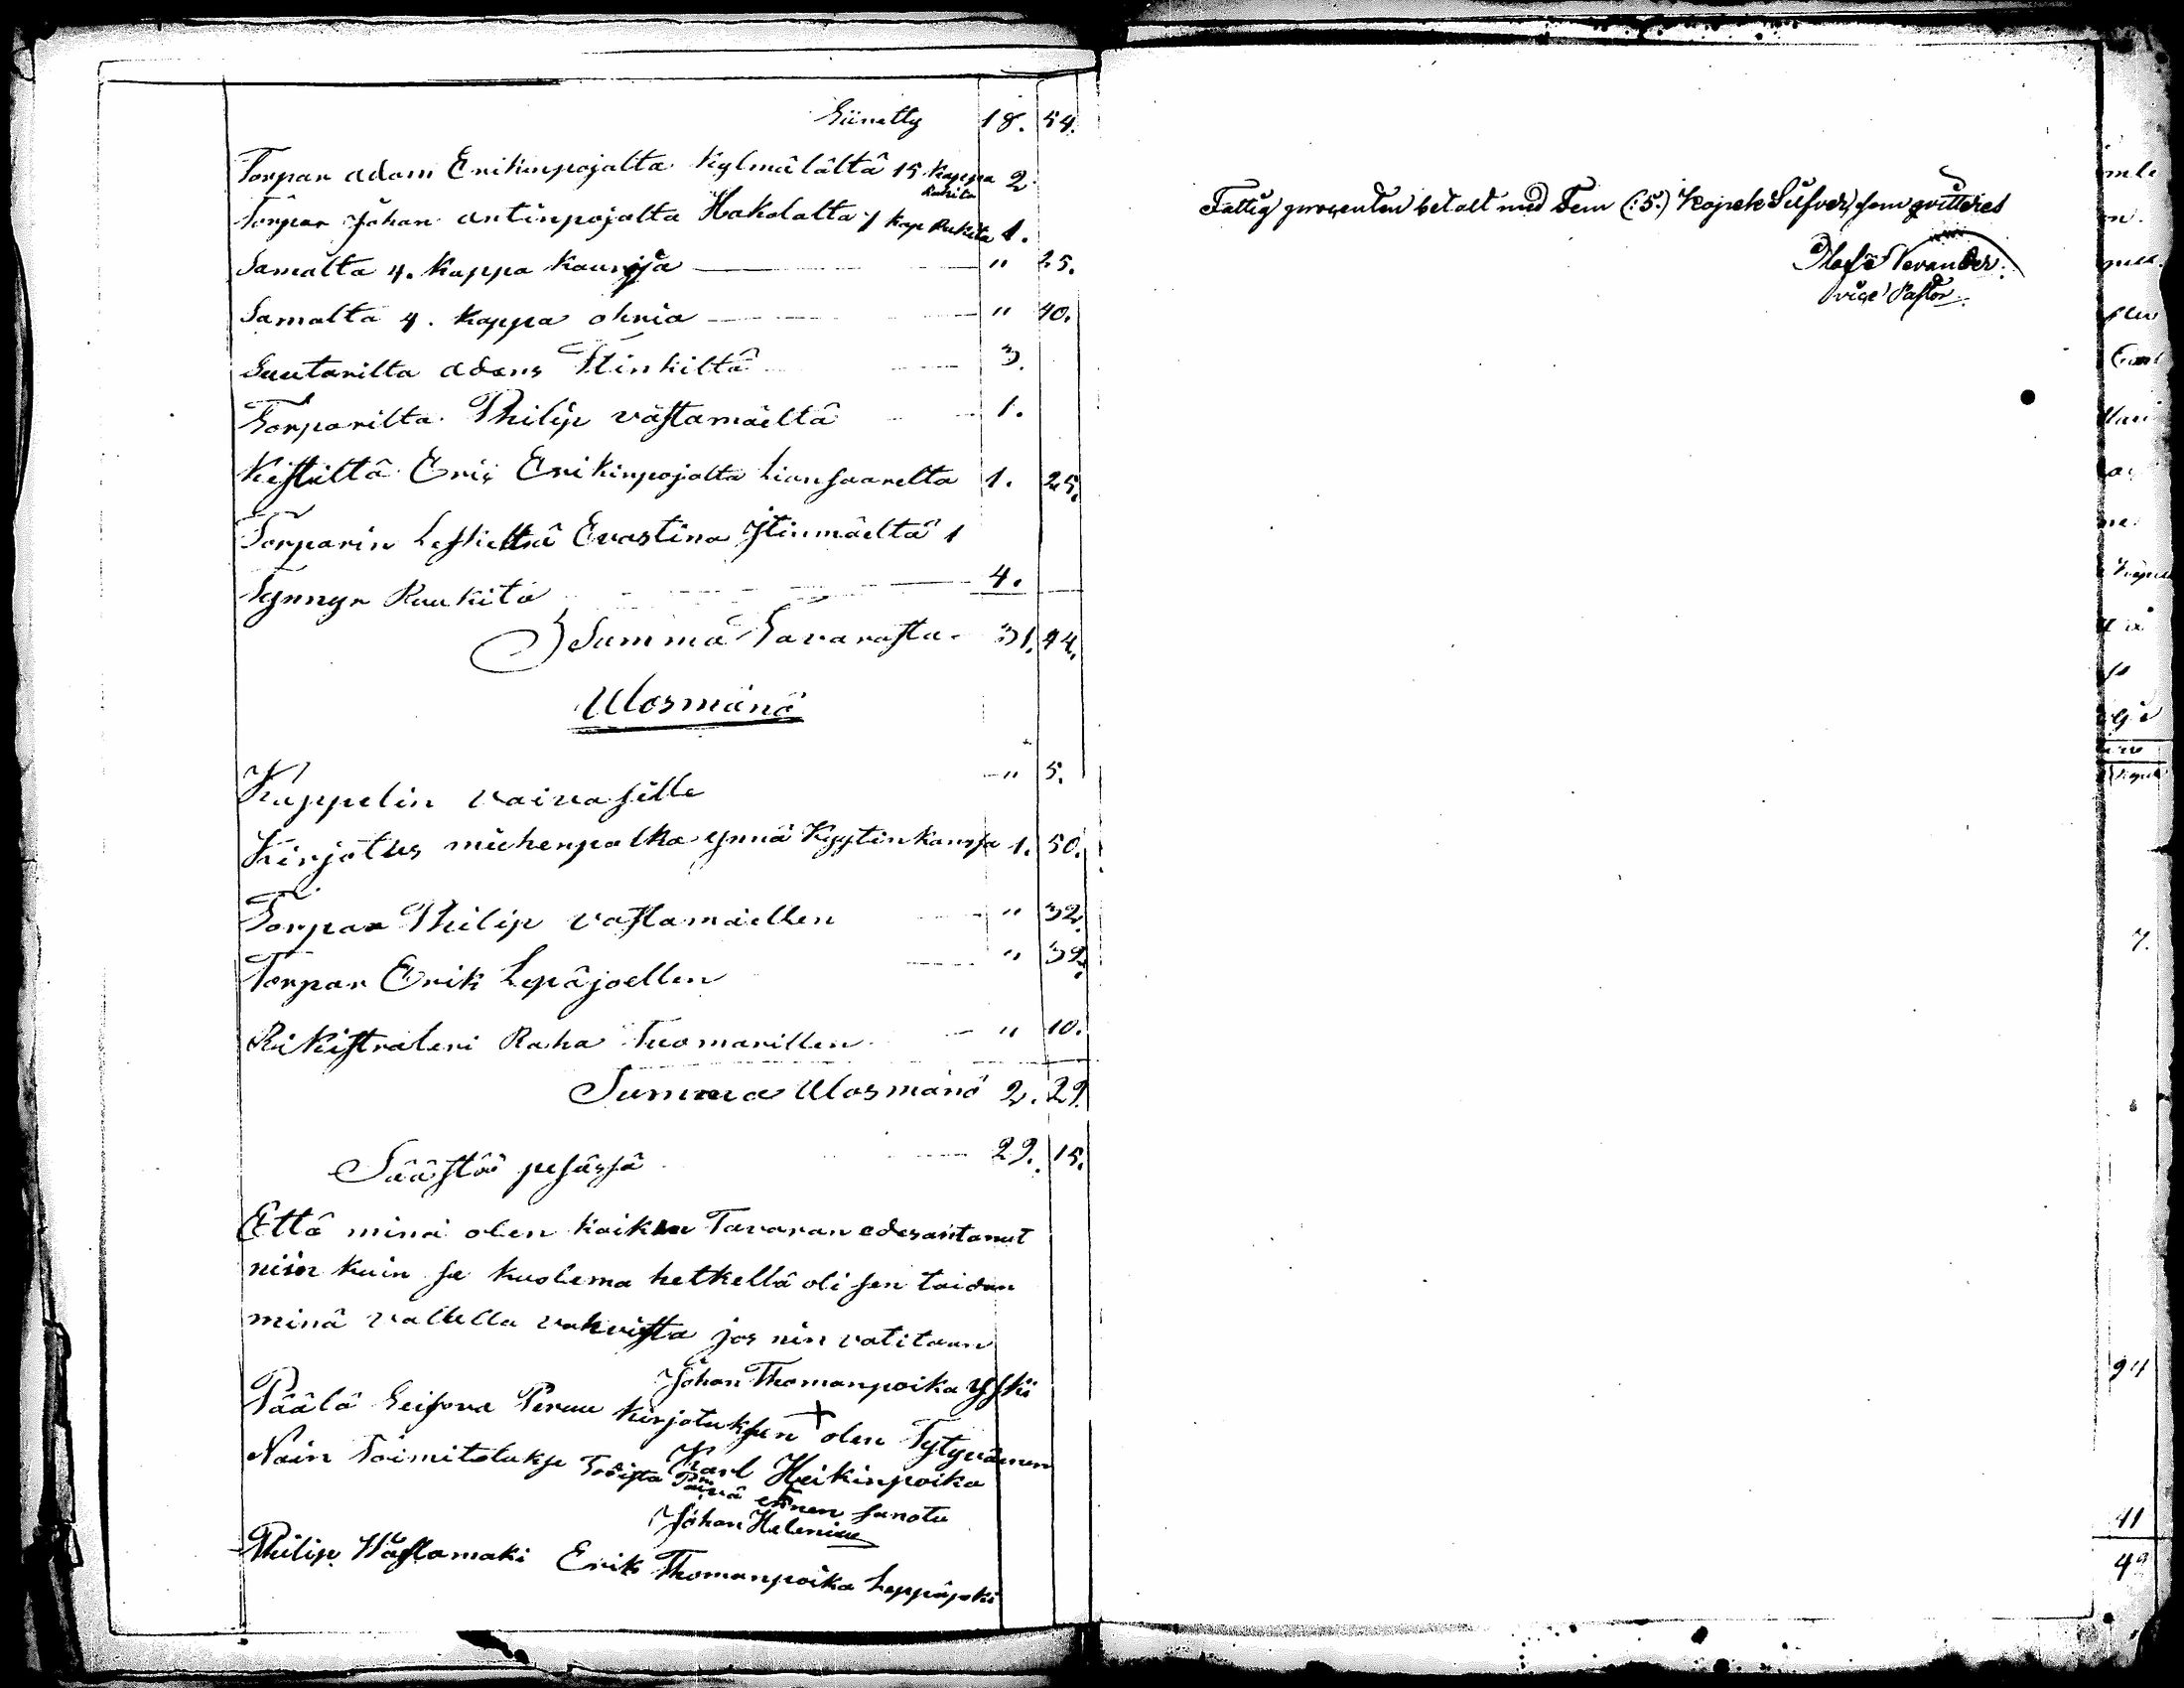 Siirretty 18. 54.
Torpar adam Erikinpojalta Kylmälältä 15 Kappa 2
Rukita
Torpar Johan antinpojalta Hakolalta 7 Kap Rukita 1.
Samalta 4. Kappa Kauroja " 25.
Samalta 4. Kappa ohria " 40.
Suutarilta adams 3.
Torparilta Philip västamäeltä 1.
Kestiltä Eric Erikinpojalta Liansaarelta 1. 25.
Torparin Leskeltä Evastina Itinmäeltä 1
Tynnyr Ruukita 4.
Summa Tavarasta 31. 44.
Ulosmänö
Kappelin vaivasille " 5.
Kirjotus miehenpalka ynnä Kyytin kanssa 1. 50.
Torpar Philip västamäellen " 32.
Torpar Erik Lepäjoellen " 32.
Rikistraleri Raha Tuomarillen " 10.
Summa Ulosmänö 2. 29.
Säästöö pesässä 29. 15.
Että minä olen kaiken Tavaran edesantanut
niin kuin se kuolema hetkellä oli sen taidan
minä vallella vahvista jos niin vatitaan
Johan Thomanpoika
Päälä Seisova Peruu kirjotuksen + olen Tytyväinen
Karl Heikinpoika
Näin Toimitetukse Todista Päivä ennen sanotu
Johan Helenius
Philip Wästamaki Erik Thomanpoika Leppäjoki
Fattig procenten betalt med Fem (:5:) Kopek Silfver, som qvitteres
Olof Nevander
vice Pastor
7.
94
41